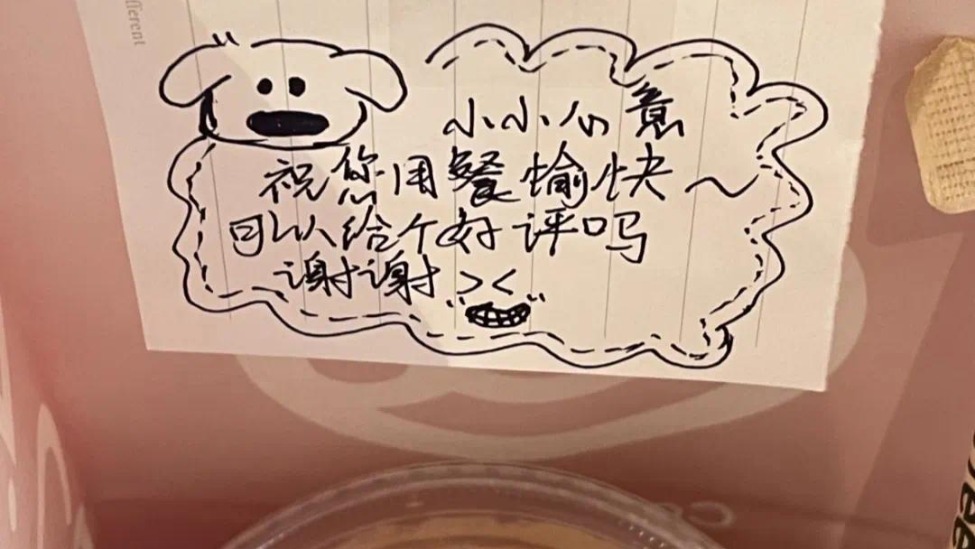 fferent
小小心意
祝您用餐愉快～
可以给个好评吗
谢谢 ><